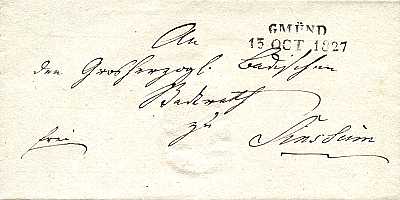 GMÜND
13 OCT. 1827
An
den Grosherzogl. Badischen
Stadtrath
zu
frei Sinsheim